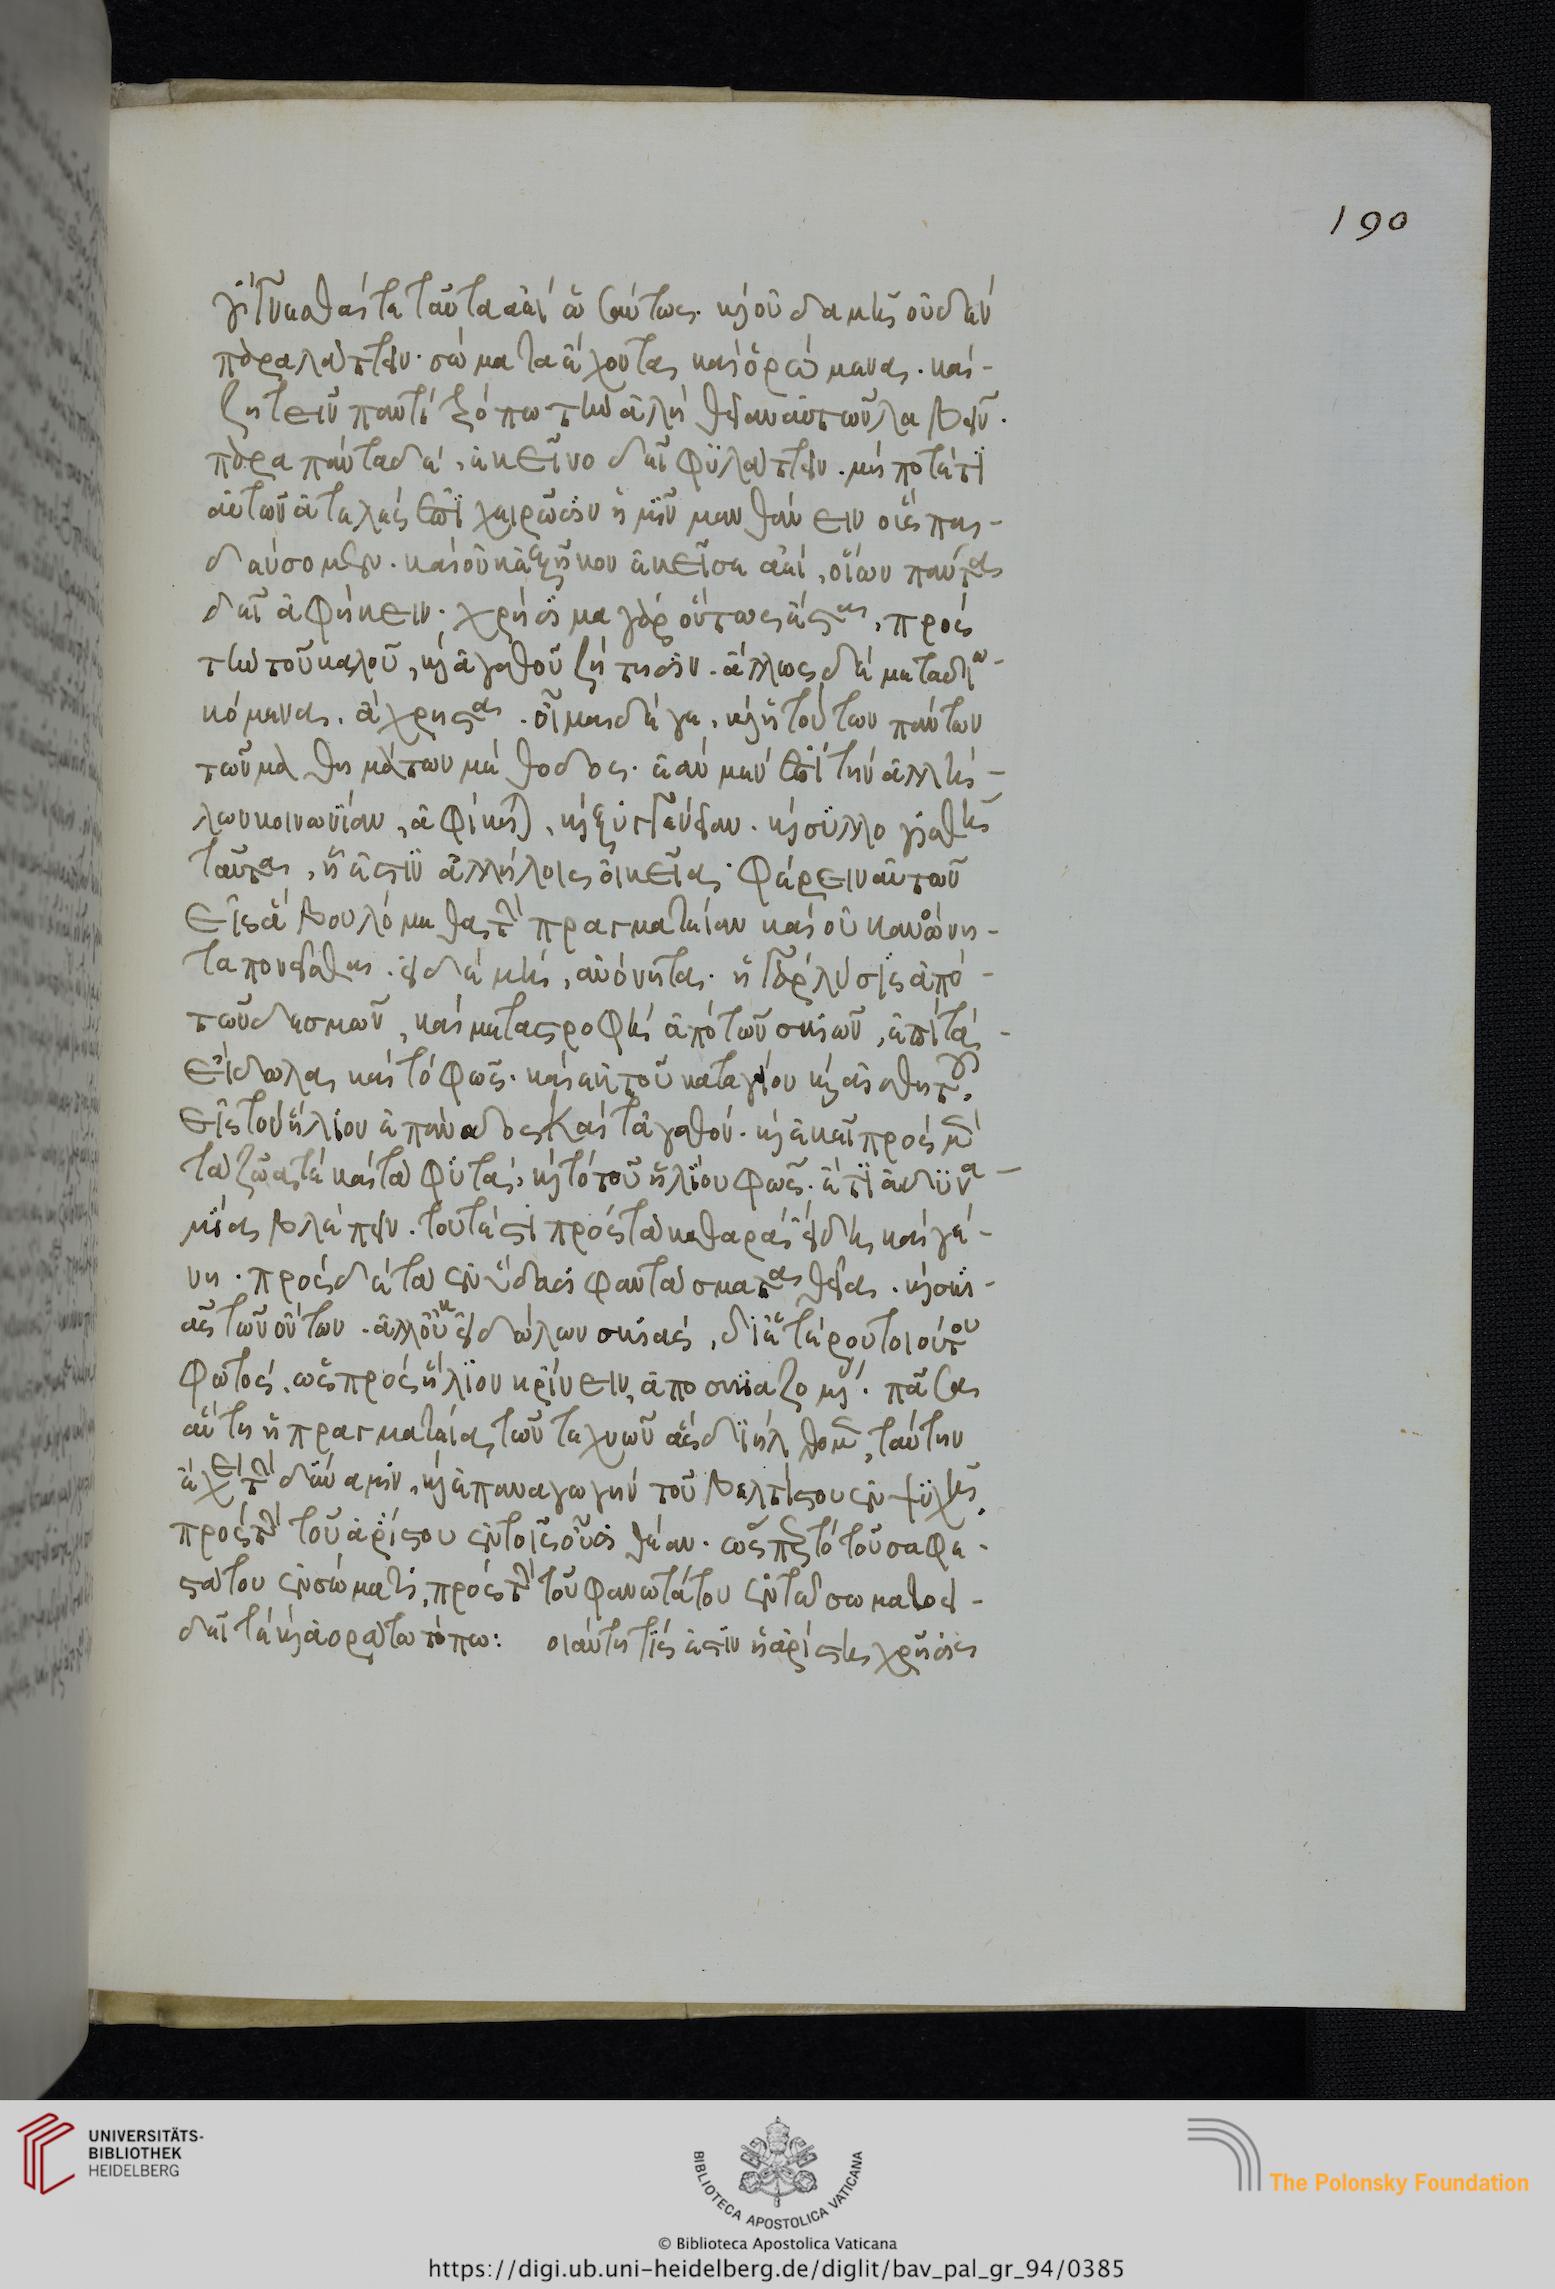 γίγνεσθαί τε ταῦτα ἀεὶ ὡσαύτως. καὶ οὐδαμῇ οὐδὲν
παραλάττειν. σώματα ἔχοντας καὶ ὁρώμενας. καὶ
ζητεῖν παντὶ τρόπω τὴν ἀλήθειαν αὐτῶν λαβεῖν.
παρὰ πάντα δὲ, ἐκεῖνο δεῖ φυλάττειν. μή ποτέ τι
αὐτῶν ἀτελὲς ἐπιχειρῶσιν ἡμῖν μανθάνειν οἷς παι-
δεύσομεν. καὶ οὐκ ἐξῆκον ἐκεῖσε ἀεὶ, οἵων πάντας
δεῖ ἀφήκειν. χρήσιμα γὰρ οὕτως ἔσται, πρὸς
τὴν τοῦ καλοῦ, καὶ ἀγαθοῦ ζήτησιν. ἄλλως δὲ μεταδιω-
κόμενας. ἄχρηστα. οἶμαι δέ γε, καὶ ἡ τούτων πάντων
τῶν μαθημάτων μέθοδος. ἐὰν μὲν ἐπὶ τὴν ἀλλή-
λων κοινωνίαν, ἀφίκηται, καὶ ξυγγένειαν. καὶ συλλογισθῇ
ταῦτα, ᾗ ἐστὶν ἀλλήλοις οἰκεῖα. φέρειν αὐτῶν
εἰς ἃ βουλόμεθα τὴν πραγματείαν καὶ οὐκ ἀνόνη-
τα πονεῖσθαι. εἰ δὲ μὴ, ἀνόνητα. ἡ γὰρ λύσις ἀπὸ
τῶν δεσμῶν, καὶ μεταστροφὴ ἀπὸ τῶν σκιῶν, ἐπὶ τὰ
εἴδωλα, καὶ τὸ φῶς. καὶ ἐκ τοῦ καταγίου καὶ αἰσθητοῦ,
εἰς τὸν ἥλιον ἐπάνοδος καὶ τἀγαθόν. καὶ ἐκεῖ πρὸς μὲν
τὰ ζῶά τε καὶ τὰ φυτὰ, καὶ τὸ τοῦ ἡλίου φῶς. ἔτι ἀδυνα-
μίας βλέπειν. τουτέστι πρὸς τὰ καθαρὰ εἴδη, καὶ γέ-
νη. πρὸς δὲ τὰ ἐν ὕδασι φαντάσματα θεῖα. καὶ σκι-
ὰς τῶν ὄντων. ἀλλ' οὐκ εἰδώλων σκιὰς, δι' ἑτέρου τοιούτου
φωτὸς. ὡς πρὸς ἥλιον κρίνειν, ἀποσκιαζομένας. πᾶσα
αὕτη ἡ πραγματεία, τῶν τεχνῶν ἃς διήλθομεν, ταύτην
ἔχει τὴν δύναμιν, καὶ ἐπαναγωγὴν τοῦ βελτίστου ἐν ψυχῇ,
πρὸς τὴν τοῦ ἀρίστου ἐν τοῖς οὖσι θέαν. ὥσπερ τὸ τοῦ σαφε-
στάτου ἐν σώματι, πρὸς τὴν τοῦ φανωτάτου ἐν τῶ σωματοει-
δεῖ τε καὶ ὁρατῶ τόπω: οιαύτη τίς ἐστιν ἡ ἀρίστη χρῆσις
190
UNIVERSITÄTS-
BIBLIOTHEK
HEIDELBERG
BIBLIOTECA APOSTOLICA VATICANA
The Polonsky Foundation
© Biblioteca Apostolica Vaticana
https://digi.ub.uni-heidelberg.de/diglit/bav_pal_gr_94/0385